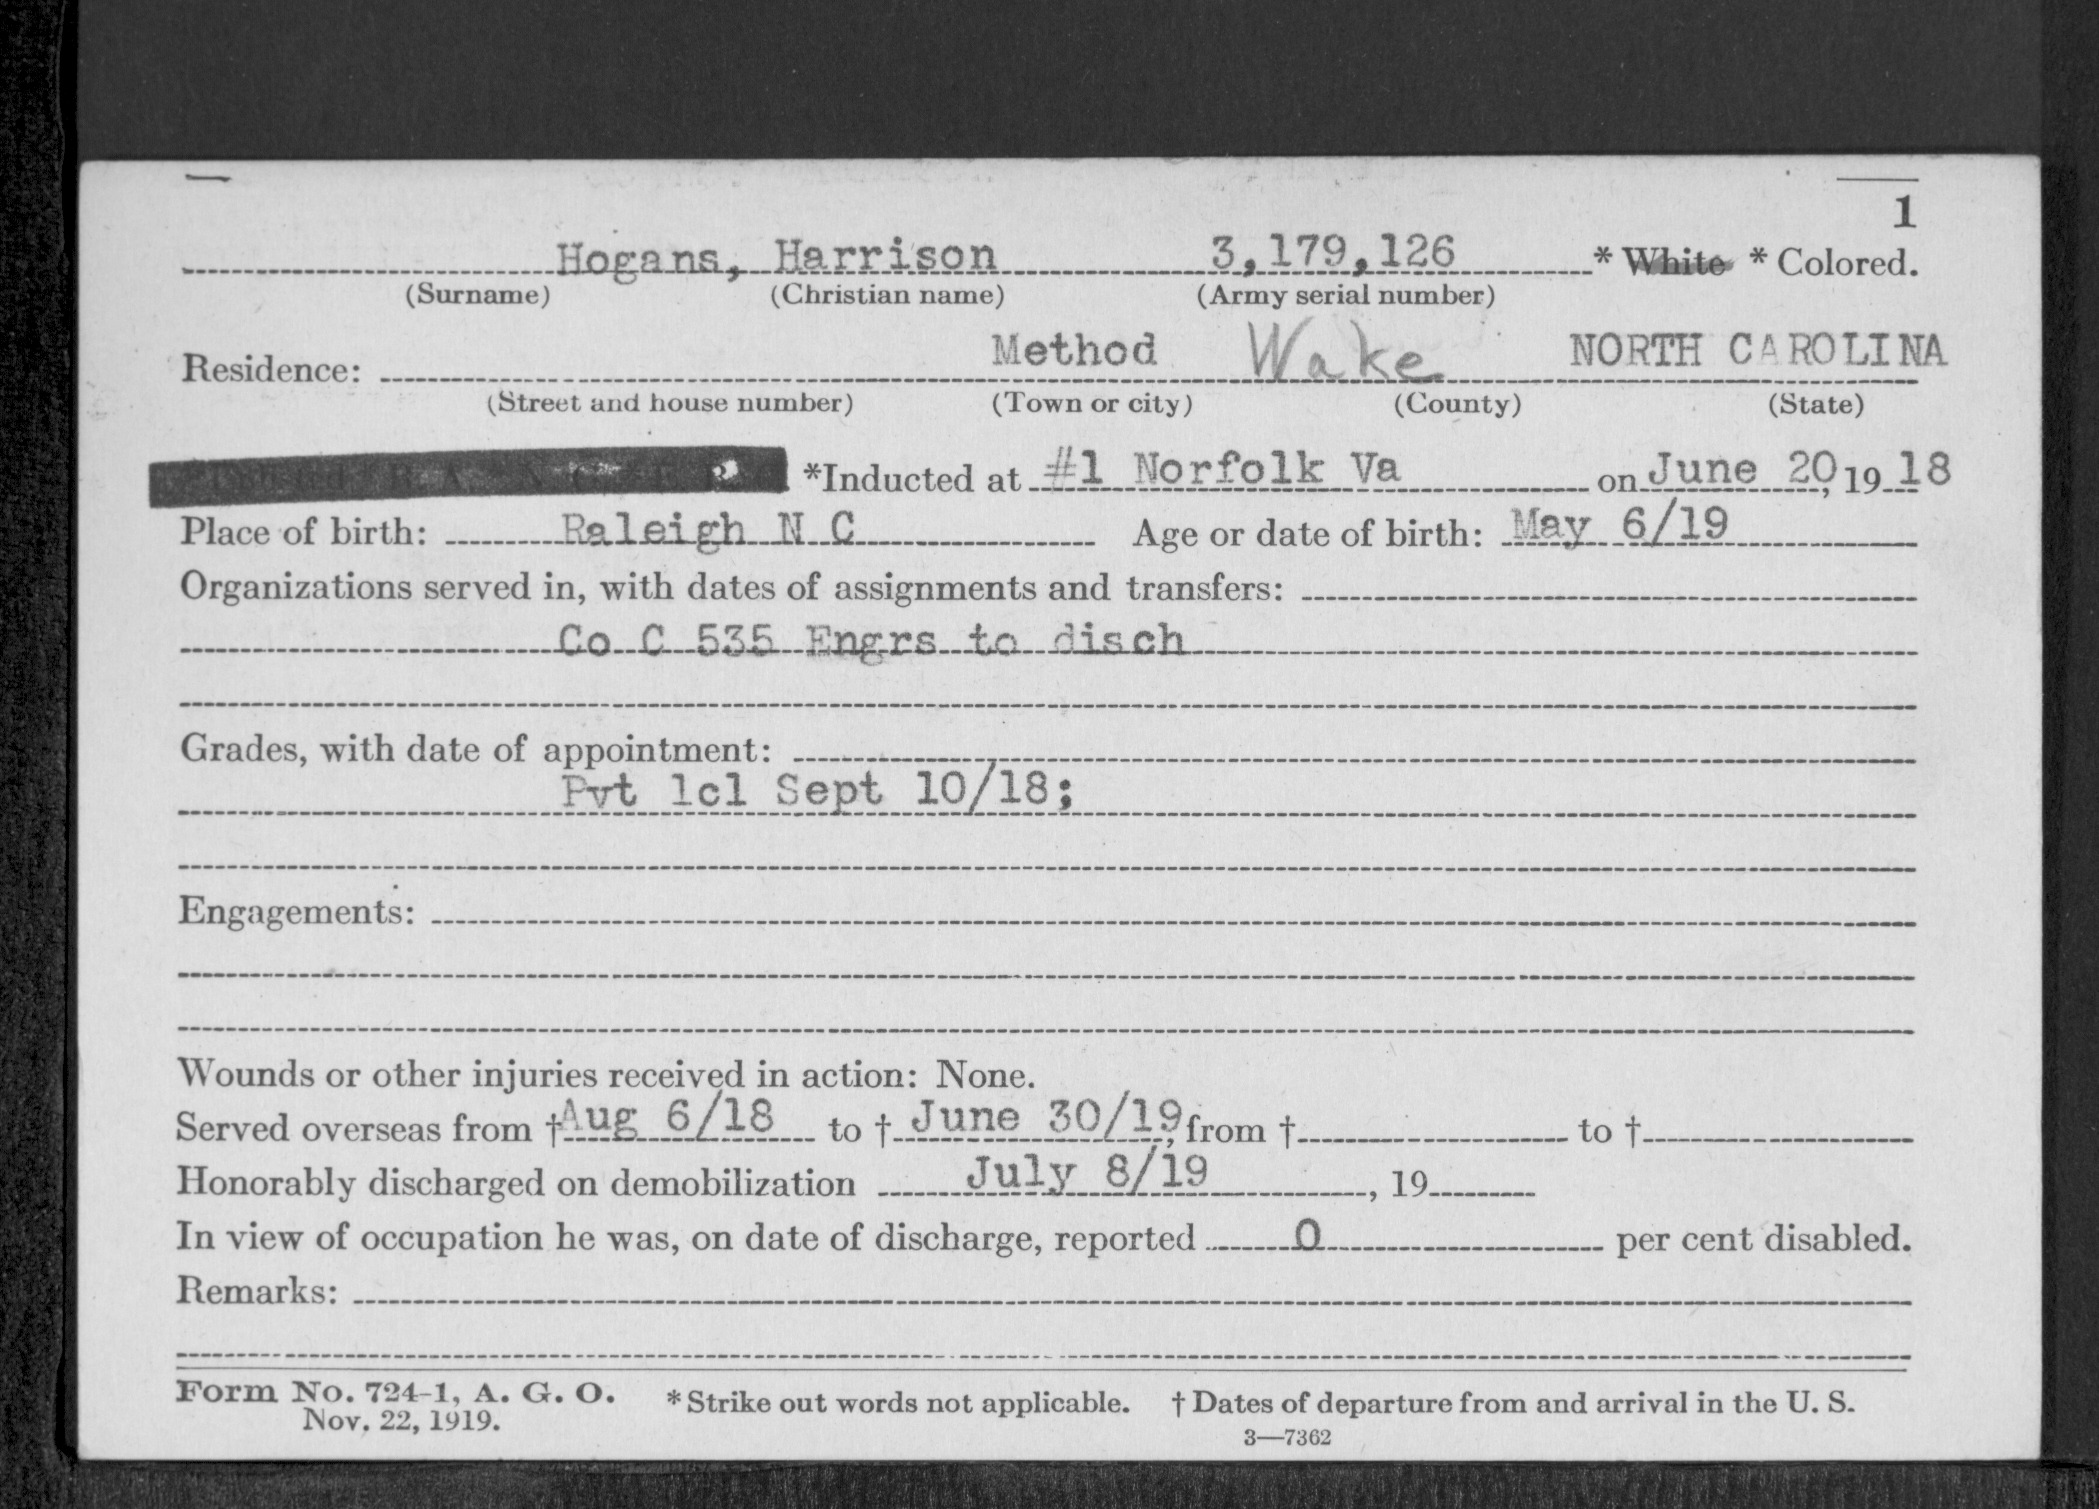 1
Hogans, Harrison 3,179,126 * White * Colored.
(Surname) (Christian name) (Army serial number)
Residence: Method Wake NORTH CAROLINA
(Street and house number) (Town or city) (County) (State)
*Inducted at #1 Norfolk Va on June 20, 19 18
Place of birth: Raleigh N C Age or date of birth: May 6/19
Organizations served in, with dates of assignments and transfers:
Co C 535 Engrs to disch
Grades, with date of appointment:
Pvt 1cl Sept 10/18;
Engagements:
Wounds or other injuries received in action: None.
Served overseas from † Aug 6/18 to † June 30/19, from † to †
Honorably discharged on demobilization July 8/19, 19
In view of occupation he was, on date of discharge, reported 0 per cent disabled.
Remarks:
Form No. 724-1, A. G. O. * Strike out words not applicable. † Dates of departure from and arrival in the U. S.
Nov. 22, 1919.
3—7362